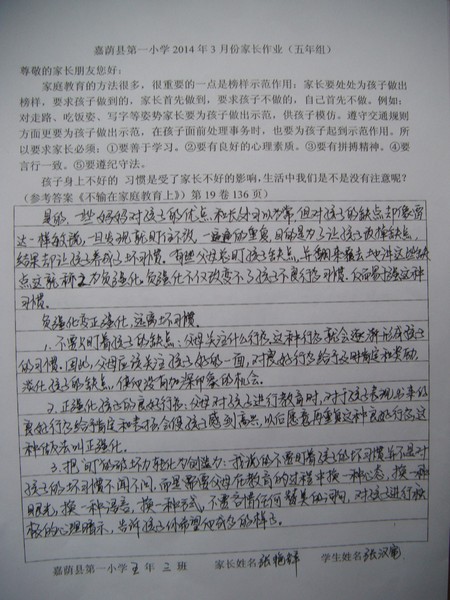 嘉荫县第一小学 2014 年 3 月份家长作业（五年组）
尊敬的家长朋友您好：
家庭教育的方法很多，很重要的一点是榜样示范作用；家长要处处为孩子做出
榜样，要求孩子做到的，家长首先做到，要求孩子不做的，自己首先不做。例如：
对走路、吃饭姿、写字等姿势家长要为孩子做出示范，供孩子模仿。遵守交通规则
方面更要为孩子做出示范，在孩子面前处理事务时，也要为孩子起到示范作用。所
以要求家长必须：①要善于学习。②要有良好的心理素质。③要有拼搏精神。④要
言行一致。⑤要遵纪守法。
孩子身上不好的 习惯是受了家长不好的影响，生活中我们是不是没有注意呢？
（参考答案《不输在家庭教育上》）第 19 卷 136 页）
是的，一些妈妈对孩子的优点，和长处习以为常，但对孩子的缺点却像雷
达一样敏锐，一旦发现就盯住不放，一遍遍的重复，目的是为了让孩子改掉缺点，
结果却让孩子养成了坏习惯。 父母总盯孩子缺点，
点这就称之为负强化，负强化不仅改变不了孩子不良行为习惯，反而会强这种
习惯。
负强化变正强化，远离坏习惯。
1、不要只盯着孩子的缺点：父母关注什么行为，这种行为就会逐渐形成孩子
的习惯。因此，父母应该关注孩子好的一面，对良好行为给予及时肯定和奖励，
淡化孩子的缺点，使他没有加深印象的机会。
2、正强化孩子的良好行为：父母对孩子进行教育时，对于孩子表现出来的
良好行为给予肯定和表扬会使孩子感到高兴，以后愿意再重复这种良好行为，这
种做法叫正强化。
3、把 的破坏力转化为创造力：我说的不要盯着孩子的坏习惯，并不是对
孩子的坏习惯不闻不问，而是需要父母在教育的过程中换一种心态，换一种
眼光，换一种语言，换一种方式，不要吝惜任何赞美的词句，对孩子进行积
极的心理暗示，告诉孩子你希望他成为的样子。
嘉荫县第一小学 五 年 三 班 家长姓名 张艳 学生姓名 张汉